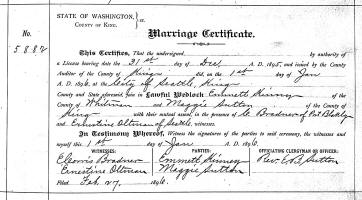 STATE OF WASHINGTON, } ss.
COUNTY OF KING.
No.
5882
Marriage Certificate.
This Certifies, That the undersigned, by authority of
a License bearing date the 31st day of Dec A. D. 1895, and issued by the County
Auditor of the County of King did, on the 1st day of Jan
A. D. 1896, at the City of Seattle, King
County and State aforesaid, join in Lawful Wedlock Emmeth Kinney
of the County of Kitsap and Maggie Sutton of the County of
King with their mutual assent, in the presence of E. Bradner of Port Blakely
and Ernestine Oltman of Seattle, witnesses.
In Testimony Whereof, Witness the signatures of the parties to said ceremony, the witnesses and
myself this 1st day of Jan A. D. 1896
WITNESSES: PARTIES: OFFICIATING CLERGYMAN OR OFFICER:
Bradner Emmeth Kinney Rev. Sutton
Ernestine Oltman Maggie Sutton
Filed Feb. 27, 1896.